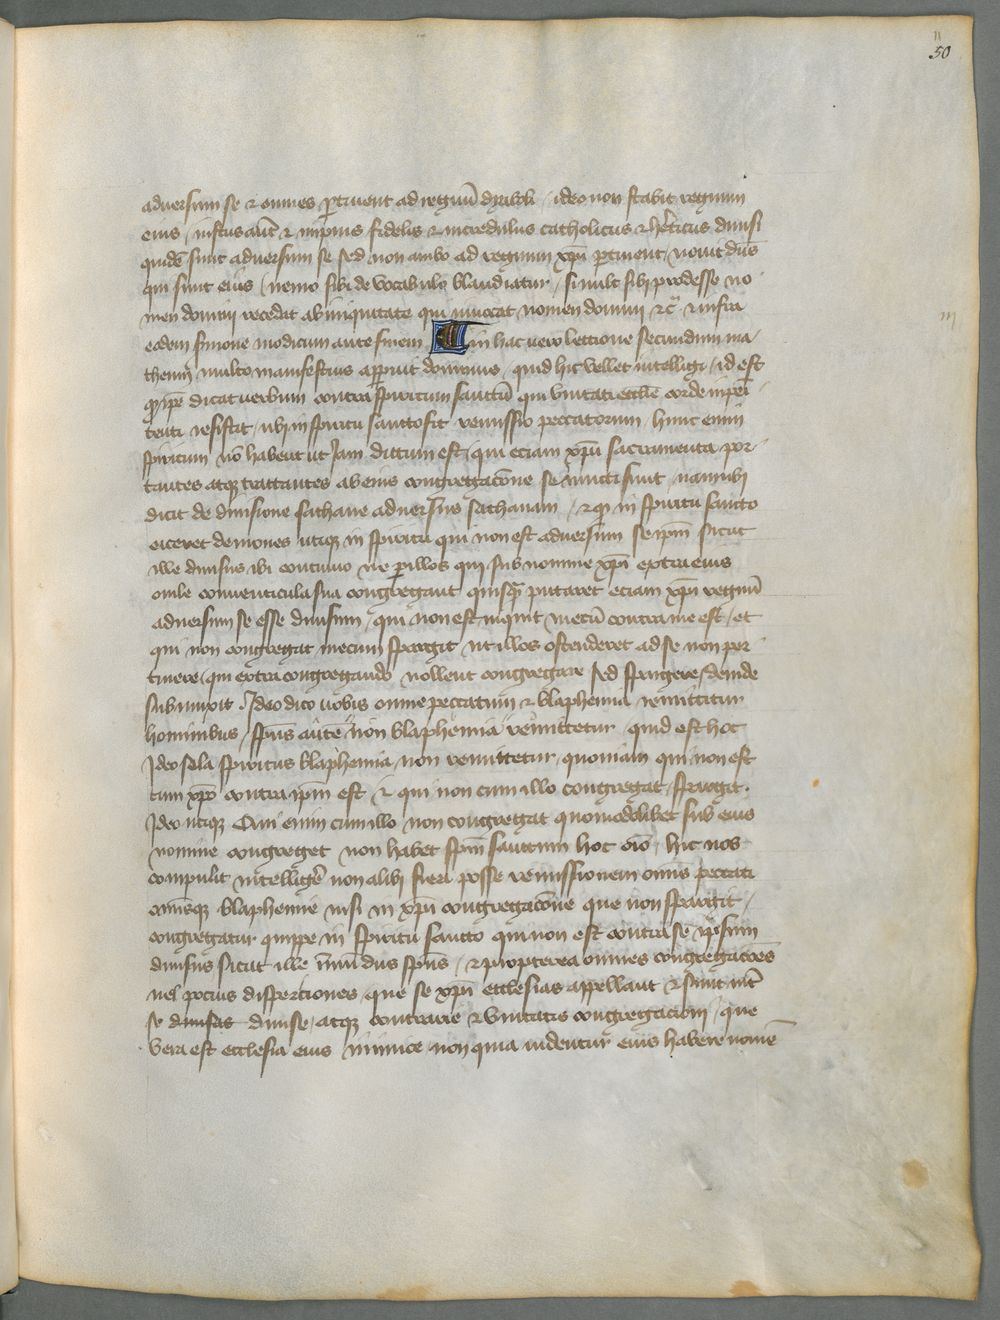 50
adversum se & omnes ꝑtinent ad regnū dyaboli / ideo non stabit regnum
eius / iustus aūt & impius fidelis & incredulus catholicus & hēticus diuisi
quidē sunt adversum se sed non ambo ad regnum xpī ꝑtinent / nouit dūs
qui sunt eius / nemo sibi de vocabulo blandiatur / si uult sibi prodesse no
men domini recedat ab iniquitate qui inuocat nomen domini &c̄ & infra
eadem simone modicum ante finem In hac uero lectione secundum ma/
theum multo manifestius aꝑuit dominus / quid hic vellet intelligi / id est
ꝙ ip̄e dicat uerbum contra spiritum sanctū qui vnitati eccl̄ie corde inpeī
tenti resistit / ubi in spiritu sancto fit remissio peccatorum / hunc enim
spiritum nō habent ut iam dictum est / qui eciam xpī sacramenta por/
tantes atqꝫ tractantes ab eius congregacōne se iuncti sunt / nam ubi
dicit de diuisione sathane adversus sathanam / & ꝙ in spiritu sancto
eiceret demones utiqꝫ in spiritu qui non est adversum se ip̄m sicut
ille diuisus ibi continuo ne ꝑ illos qui sub nomine xpī extra eius
ouile conuenticula sua congregant quisꝙ̄ putaret eciam xpī regnū
adversum se esse diuisum / qui non est inquit mecū contra me est / et
qui non congregat mecum spargit ut illos ostenderet ad se non per
tinere / qui extra congregando nollent congregare sed spargere / deinde
subiunxit . Ideo dico uobis omne peccatum & blaphemia remittitur
hominibus / sp̄us autē non blaphemia remittetur quid est hoc
Ideo sola spiritus blaphemia non remittetur quoniam qui non est
cum xpō contra ip̄m est & qui non cum illo congregat / spargit .
Ideo utiqꝫ Qui enim cum illo non congregat quomodolibet sub eius
nomine congreget non habet sp̄m sanctum hoc oīo / hic nos
compulit intelligē non alibi fieri posse remissionem omīs peccati
omīsqꝫ blaphemie nisi in xpī congregacōne que non spargit /
congregatur quippe in spiritu sancto qui non est contra se ipsum
diuisus sicut ille īmūdus sp̄us / & propterea omnes congregacōes
uel pocius dispertiones / que se xpī ecclesias appellant & sunt int̄
se diuisas diuise / atqꝫ contrarie & vnitatis congregacioni / que
vera est ecclesia eius inimice non quia uidentur eius habere nomē